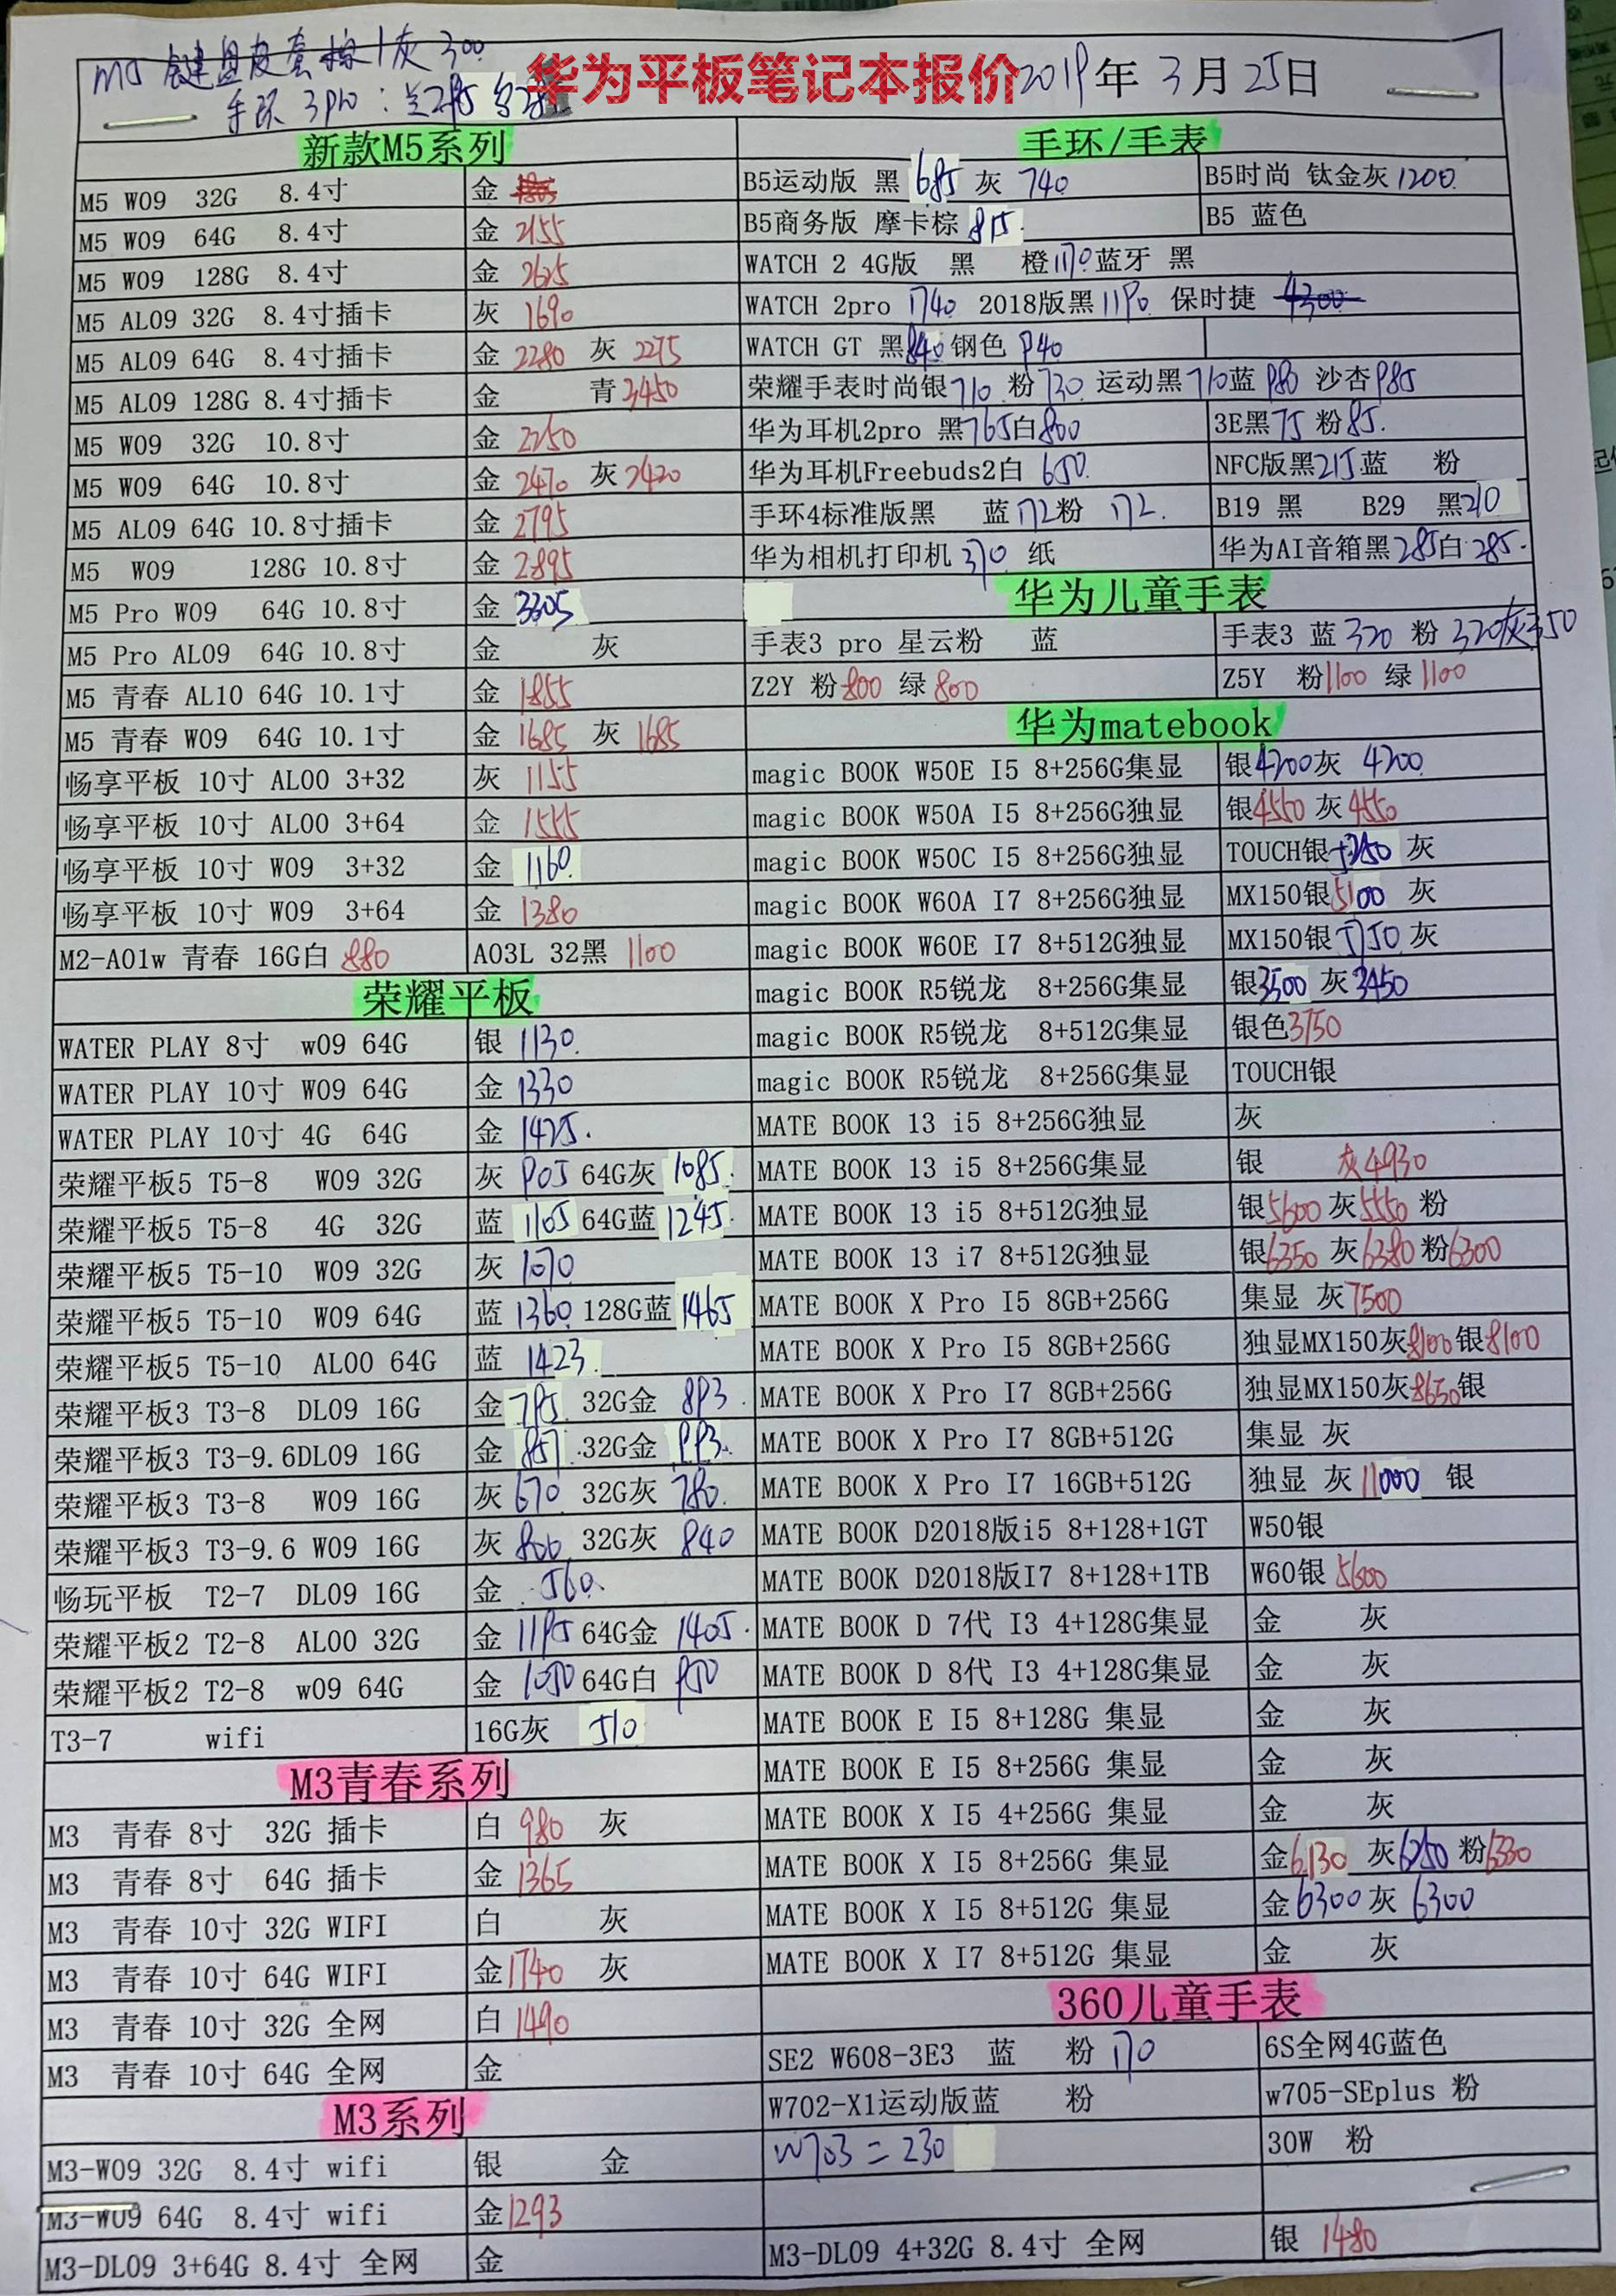 M5 键盘皮套棕/灰 300
华为平板笔记本报价 2019年 3月 25日
手环 3pro：兰245
新款M5系列
M5 W09 32G 8.4寸 金
M5 W09 64G 8.4寸 金 2155
M5 W09 128G 8.4寸 金 2625
M5 AL09 32G 8.4寸插卡 灰 1690
M5 AL09 64G 8.4寸插卡 金 2280 灰 2275
M5 AL09 128G 8.4寸插卡 金 青 3450
M5 W09 32G 10.8寸 金 2250
M5 W09 64G 10.8寸 金 2470 灰 2420
M5 AL09 64G 10.8寸插卡 金 2795
M5 W09 128G 10.8寸 金 2895
M5 Pro W09 64G 10.8寸 金 3305
M5 Pro AL09 64G 10.8寸 金 灰
M5 青春 AL10 64G 10.1寸 金 1855
M5 青春 W09 64G 10.1寸 金 1685 灰 1685
畅享平板 10寸 AL00 3+32 灰 1155
畅享平板 10寸 AL00 3+64 金 1555
畅享平板 10寸 W09 3+32 金 1160
畅享平板 10寸 W09 3+64 金 1380
M2-A01w 青春 16G白 880 A03L 32黑 1100
荣耀平板
WATER PLAY 8寸 w09 64G 银 1130
WATER PLAY 10寸 W09 64G 金 1330
WATER PLAY 10寸 4G 64G 金 1425
荣耀平板5 T5-8 W09 32G 灰 905 64G灰 1085
荣耀平板5 T5-8 4G 32G 蓝 1105 64G蓝 1245
荣耀平板5 T5-10 W09 32G 灰 1070
荣耀平板5 T5-10 W09 64G 蓝 1360 128G蓝 1465
荣耀平板5 T5-10 AL00 64G 蓝 1423
荣耀平板3 T3-8 DL09 16G 金 795 32G金 893
荣耀平板3 T3-9.6DL09 16G 金 857 32G金 993
荣耀平板3 T3-8 W09 16G 灰 670 32G灰 780
荣耀平板3 T3-9.6 W09 16G 灰 800 32G灰 840
畅玩平板 T2-7 DL09 16G 金 560
荣耀平板2 T2-8 AL00 32G 金 1195 64G金 1405
荣耀平板2 T2-8 w09 64G 金 1050 64G白 950
T3-7 wifi 16G灰 510
M3青春系列
M3 青春 8寸 32G 插卡 白 980 灰
M3 青春 8寸 64G 插卡 金 1365
M3 青春 10寸 32G WIFI 白 灰
M3 青春 10寸 64G WIFI 金1740 灰
M3 青春 10寸 32G 全网 白 1490
M3 青春 10寸 64G 全网 金
M3系列
M3-W09 32G 8.4寸 wifi 银 金
M3-W09 64G 8.4寸 wifi 金1293
M3-DL09 3+64G 8.4寸 全网 金
手环/手表
B5运动版 黑 685 灰 740 B5时尚 钛金灰 1200
B5商务版 摩卡棕 815 B5 蓝色
WATCH 2 4G版 黑 橙1170蓝牙 黑
WATCH 2pro 1740 2018版黑 1190 保时捷 4300
WATCH GT 黑840 钢色 940
荣耀手表时尚银710 粉730 运动黑710蓝 980 沙杏985
华为耳机2pro 黑765白800 3E黑75 粉85
华为耳机Freebuds2白 650 NFC版黑215蓝 粉
手环4标准版黑 蓝172粉 172 B19 黑 B29 黑210
华为相机打印机 370 纸 华为AI音箱黑285白285
华为儿童手表
手表3 pro 星云粉 蓝 手表3 蓝 320 粉 320灰350
Z2Y 粉800 绿800 Z5Y 粉1100 绿1100
华为matebook
magic BOOK W50E I5 8+256G集显 银4200灰 4200
magic BOOK W50A I5 8+256G独显 银4550 灰4550
magic BOOK W50C I5 8+256G独显 TOUCH银 灰
magic BOOK W60A I7 8+256G独显 MX150银5100 灰
magic BOOK W60E I7 8+512G独显 MX150银5150 灰
magic BOOK R5锐龙 8+256G集显 银3500 灰3450
magic BOOK R5锐龙 8+512G集显 银色3750
magic BOOK R5锐龙 8+256G集显 TOUCH银
MATE BOOK 13 i5 8+256G独显 灰
MATE BOOK 13 i5 8+256G集显 银 灰4930
MATE BOOK 13 i5 8+512G独显 银5600 灰5550 粉
MATE BOOK 13 i7 8+512G独显 银6350 灰6380粉6300
MATE BOOK X Pro I5 8GB+256G 集显 灰7500
MATE BOOK X Pro I5 8GB+256G 独显MX150灰8100银8100
MATE BOOK X Pro I7 8GB+256G 独显MX150灰8650银
MATE BOOK X Pro I7 8GB+512G 集显 灰
MATE BOOK X Pro I7 16GB+512G 独显 灰11000 银
MATE BOOK D2018版i5 8+128+1GT W50银
MATE BOOK D2018版I7 8+128+1TB W60银 5600
MATE BOOK D 7代 I3 4+128G集显 金 灰
MATE BOOK D 8代 I3 4+128G集显 金 灰
MATE BOOK E I5 8+128G 集显 金 灰
MATE BOOK E I5 8+256G 集显 金 灰
MATE BOOK X I5 4+256G 集显 金 灰
MATE BOOK X I5 8+256G 集显 金6130 灰6250 粉6330
MATE BOOK X I5 8+512G 集显 金6300灰 6300
MATE BOOK X I7 8+512G 集显 金 灰
360儿童手表
SE2 W608-3E3 蓝 粉 170 6S全网4G蓝色
W702-X1运动版蓝 粉 w705-SEplus 粉
W703 = 230 30W 粉
M3-DL09 4+32G 8.4寸 全网 银 1480